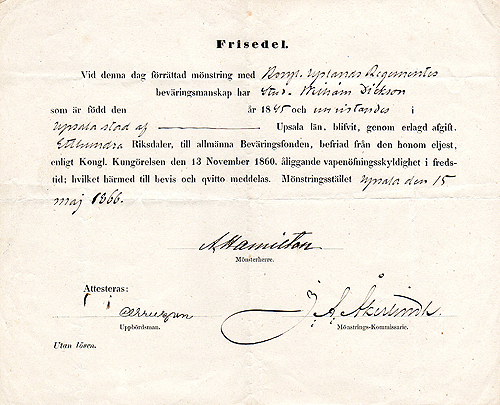 Frisedel.
Vid denna dag förrättad mönstring med Kongl. Uplands Regementes
beväringsmanskap har Stud. William Dickson
som är född den år 1845 och inskrifven i
Upsala stad af Upsala län, blifvit, genom erlagd afgift,
Etthundra Riksdaler, till allmänna Beväringsfonden, befriad från den honom eljest,
enligt Kongl. Kungörelsen den 13 November 1860, åliggande vapenöfningsskyldighet i freds-
tid; hvilket härmed till bevis och qvitto meddelas. Mönstringsstället Upsala den 15
maj 1866.
A Hamilton
Mönsterherre.
Attesteras:
J. A. Åkerlindh.
Uppbördsman. Mönstrings-Kommissarie.
Utan lösen.